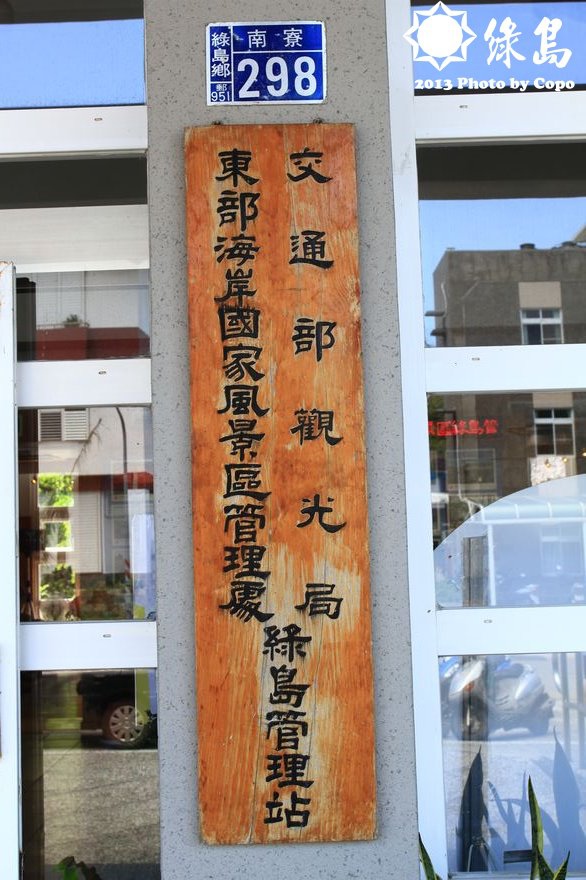 綠島
2013 Photo by Copo
南寮
綠島鄉
郵951
298
交通部觀光局
東部海岸國家風景區管理處
綠島管理站